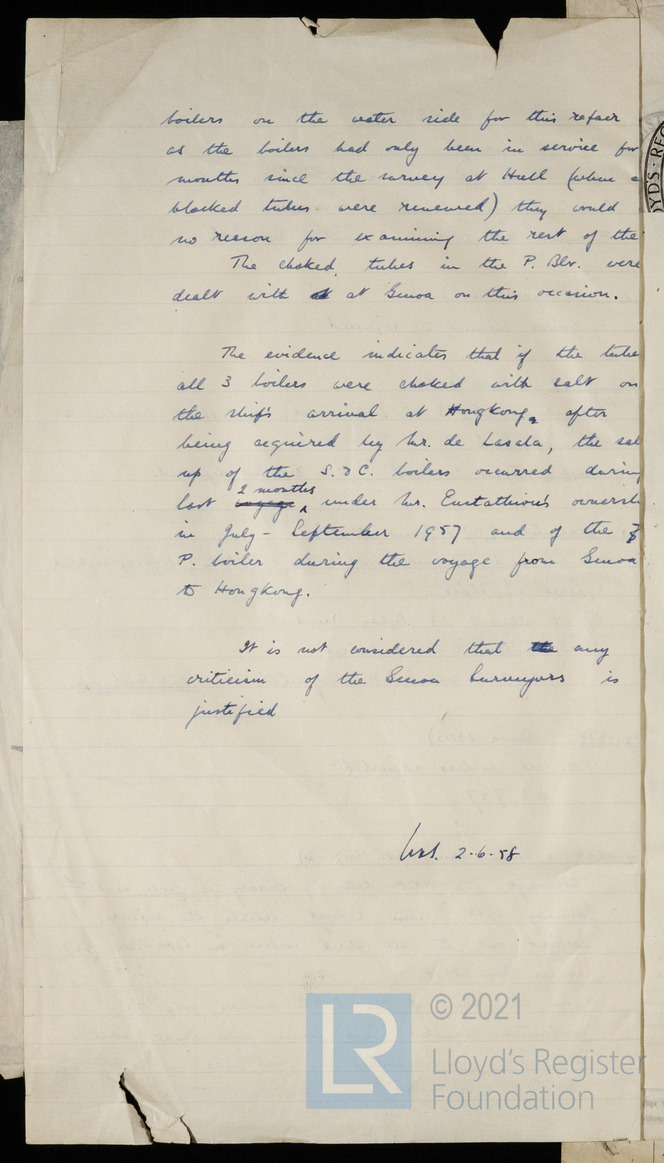 boilers on the water side for this repair
as the boilers had only been in service for
months since the survey at Hull (when
blocked tubes were renewed) they would
no reason for examining the rest of the
The choked tubes in the P. Blr. were
dealt with at at Genoa on this occasion.
The evidence indicates that if the tube
all 3 boilers were choked with salt on
the ship's arrival at Hongkong, after
being acquired by Mr. de Lasala, the sal
up of the S. & C. boilers occurred during
2 months
last voyage under Mr. Eustathiou's ownersh
in July - September 1957 and of the
P. boiler during the voyage from Genoa
to Hongkong.
It is not considered that the any
criticism of the Genoa Surveyors is
justified
2.6.58
YDS. REG
LR
© 2021
Lloyd's Register
Foundation